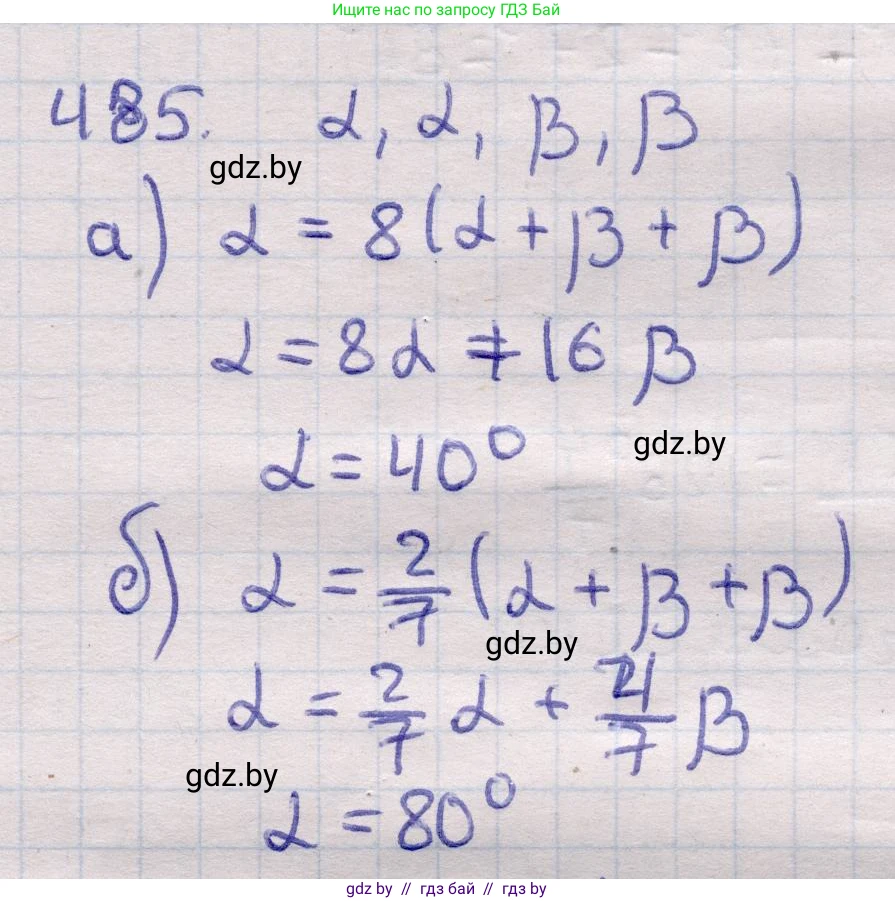 Ищите нас по запросу ГДЗ Бай
485. α, α, β, β
gdz.by
а) α = 8(α + β + β)
α = 8α + 16β
gdz.by
α = 40°
б) α = 2/7 (α + β + β)
gdz.by
α = 2/7 α + 4/7 β
gdz.by
α = 80°
gdz.by // гдз бай // гдз by